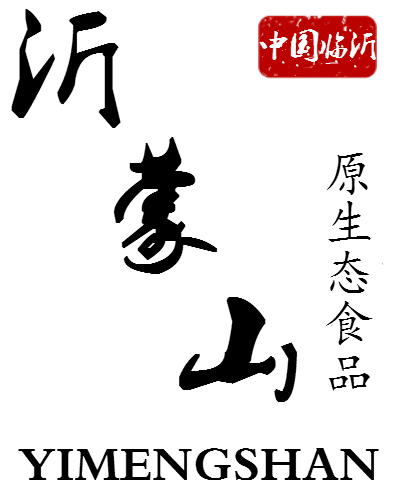 沂蒙山
中国临沂
原生态食品
YIMENGSHAN